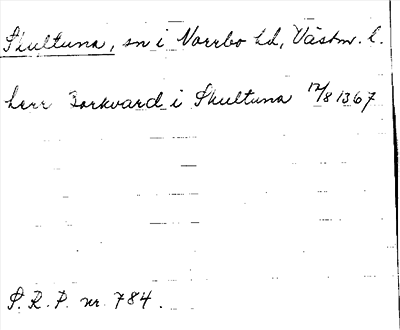 Skultuna, sn i Norrbo hd, Västm. l.
herr Forkvard i Skultuna 17/8 1367
S. R. P. nr. 784.